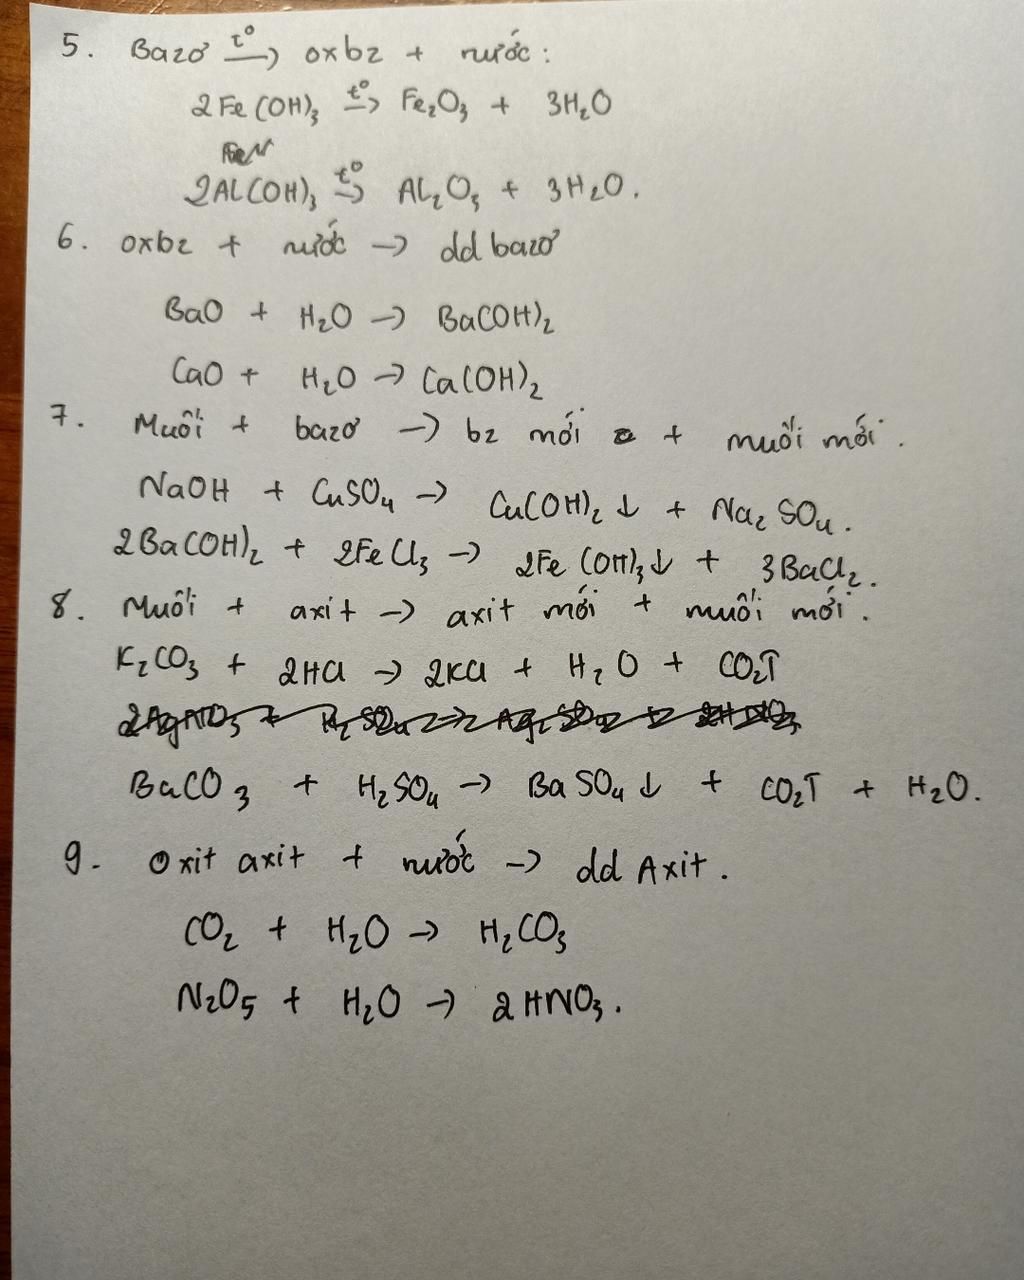 5. Bazơ t⁰→ oxbz + nước:
2Fe(OH)₃ t⁰→ Fe₂O₃ + 3H₂O
2Al(OH)₃ t⁰→ Al₂O₃ + 3H₂O.
6. oxbz + nước → dd bazơ
BaO + H₂O → Ba(OH)₂
CaO + H₂O → Ca(OH)₂
7. Muối + bazơ → bz mới + muối mới.
NaOH + CuSO₄ → Cu(OH)₂↓ + Na₂SO₄.
2Ba(OH)₂ + 2FeCl₃ → 2Fe(OH)₃↓ + 3BaCl₂.
8. Muối + axit → axit mới + muối mới.
K₂CO₃ + 2HCl → 2KCl + H₂O + CO₂↑
BaCO₃ + H₂SO₄ → BaSO₄↓ + CO₂↑ + H₂O.
9. Oxit axit + nước → dd Axit.
CO₂ + H₂O → H₂CO₃
N₂O₅ + H₂O → 2HNO₃.